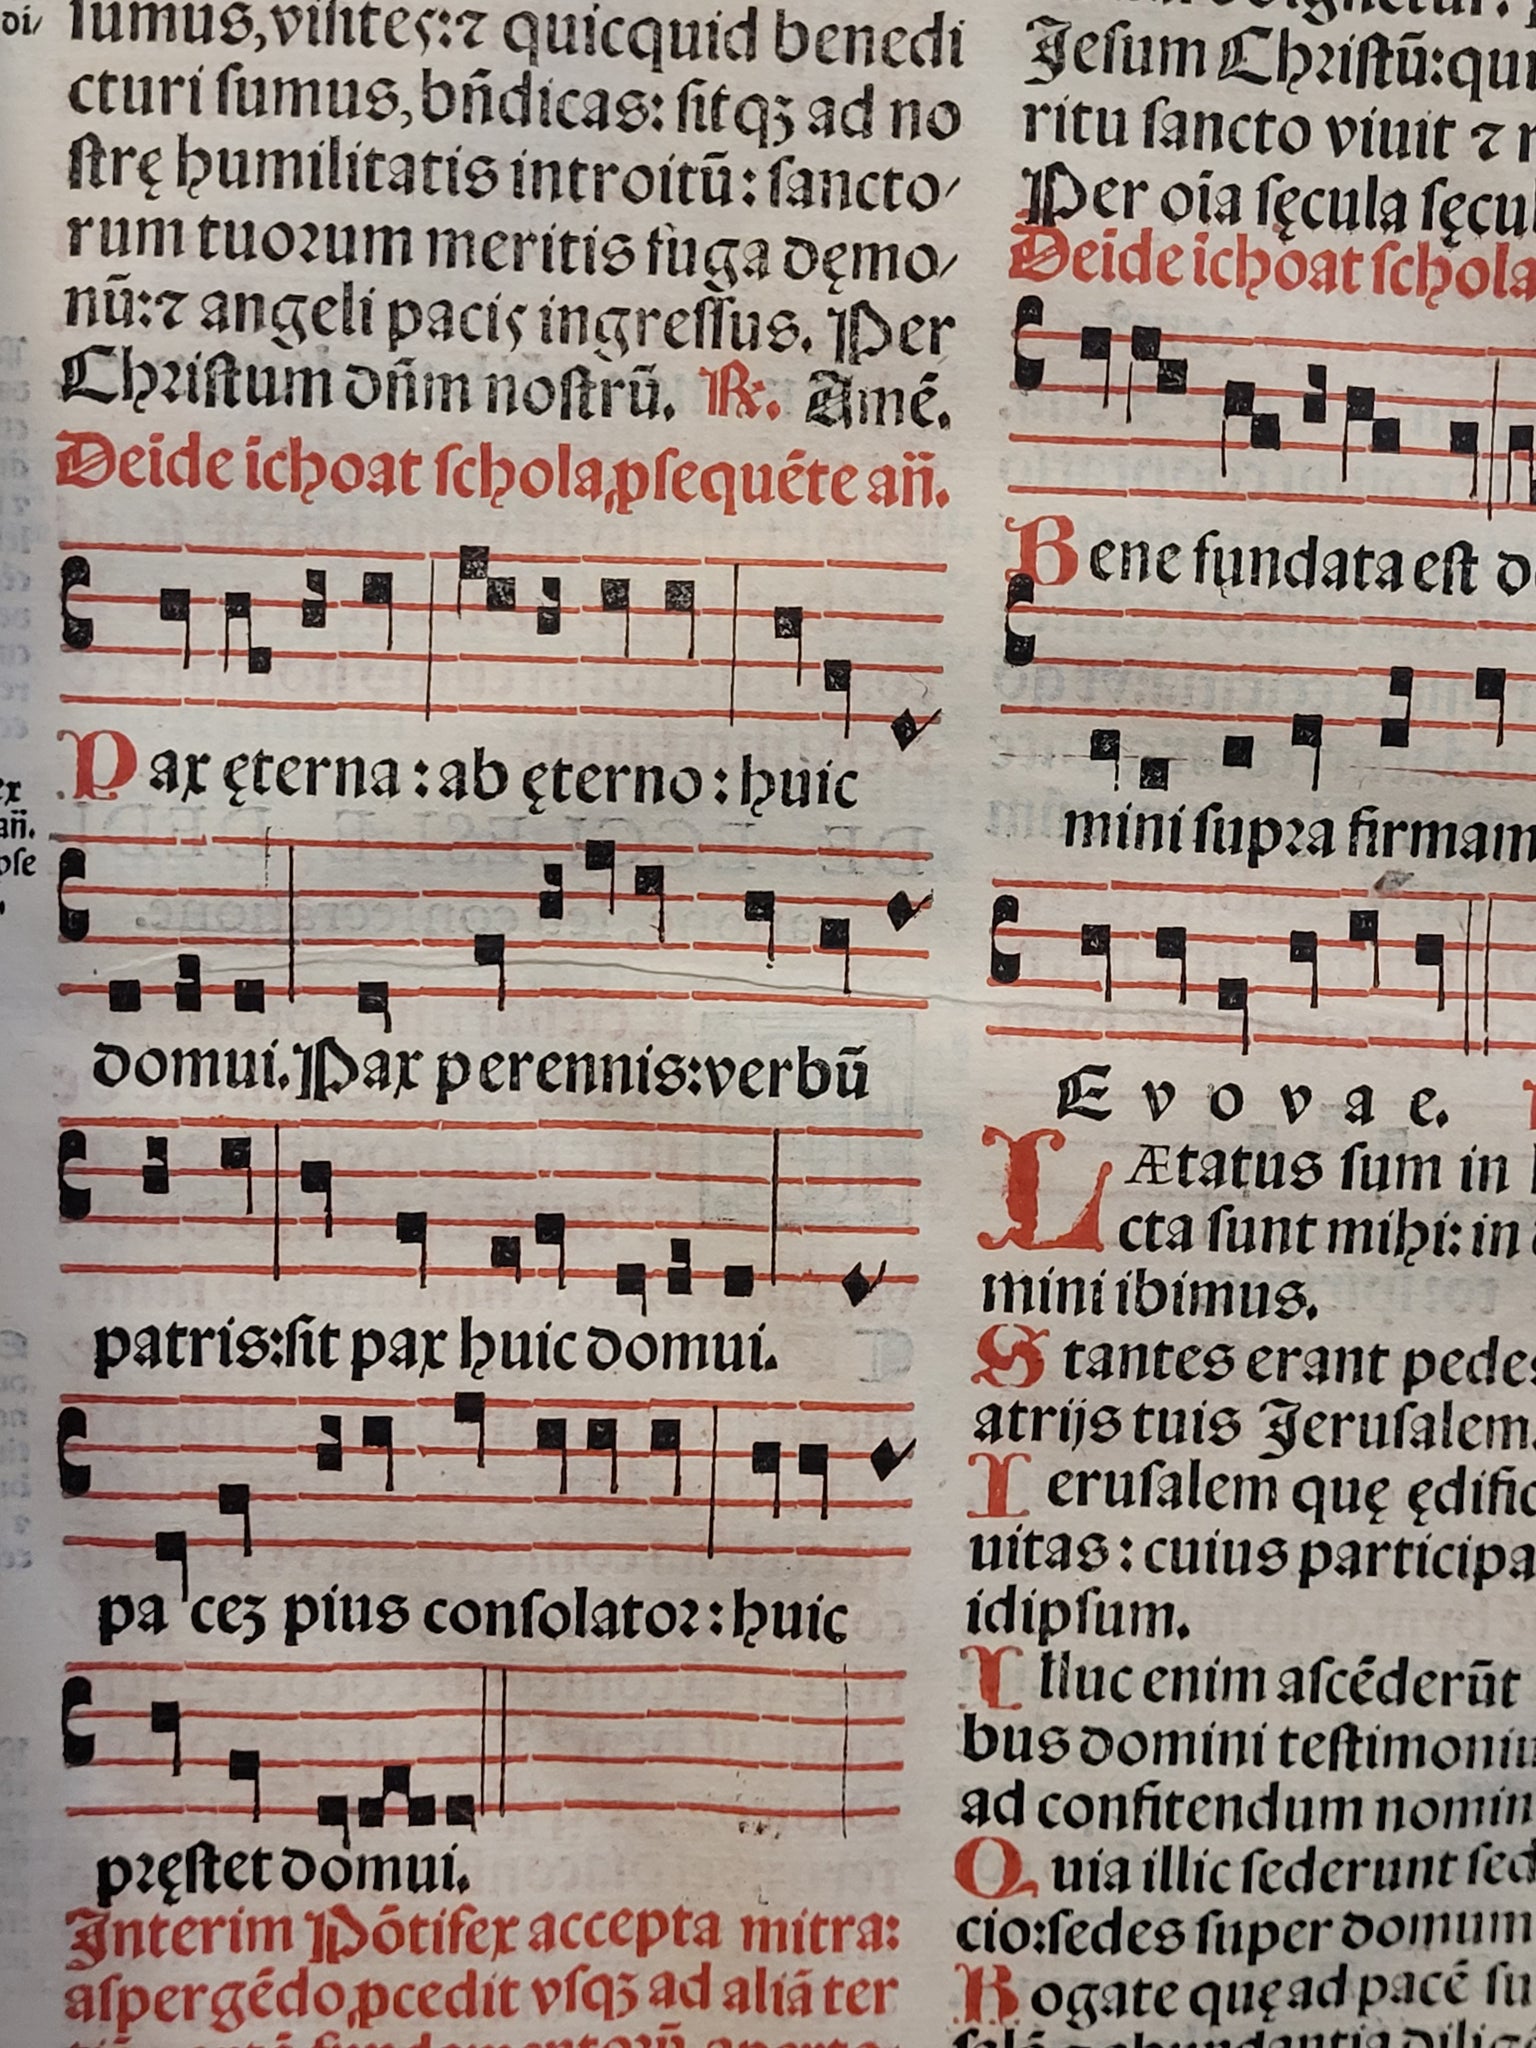 di/
sumus, visites: ⁊ quicquid benedi
cturi sumus, bñdicas: sitqꝫ ad no
strę humilitatis introitū: sancto/
rum tuorum meritis fuga dęmo/
nū: ⁊ angeli pacis ingressus. Per
Christum dñm nostrū. ℞. Amē.
Deīde īchoat schola, ꝓsequēte añ.
Pax ęterna: ab ęterno: huic
domui. Pax perennis: verbū
patris: sit pax huic domui.
pa ceꝫ pius consolator: huic
pręstet domui.
Interim Pōtifex accepta mitra:
aspergēdo, ꝓcedit vsqꝫ ad aliā ter
ex
añ.
Jesum Christū: qui
ritu sancto viuit ⁊ r
Per oīa sęcula sęcul
Deīde īchoat schola
Bene fundata est do
mini supra firmam
E v o v a e.
LÆtatus sum in
cta sunt mihi: in
mini ibimus.
Stantes erant pedes
atrijs tuis Jerusalem.
Ierusalem quę ędific
uitas: cuius participa
idipsum.
Illuc enim ascēderūt
bus domini testimoniu
ad confitendum nomin
Quia illic sederunt sed
cio: sedes super domum
Rogate quę ad pacē su